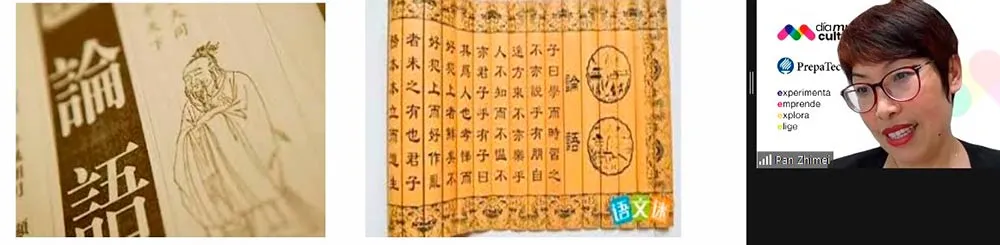 論語
論語
子曰學而時習之
不亦說乎有朋自
遠方來不亦樂乎
人不知而不慍不
亦君子乎有子曰
其為人也孝悌而
好犯上者鮮矣不
好犯上而好作亂
者未之有也君子
務本本立而道生
语文迷
día mu
cult
PrepaTec
experimenta
emprende
explora
elige
Pan Zhimei